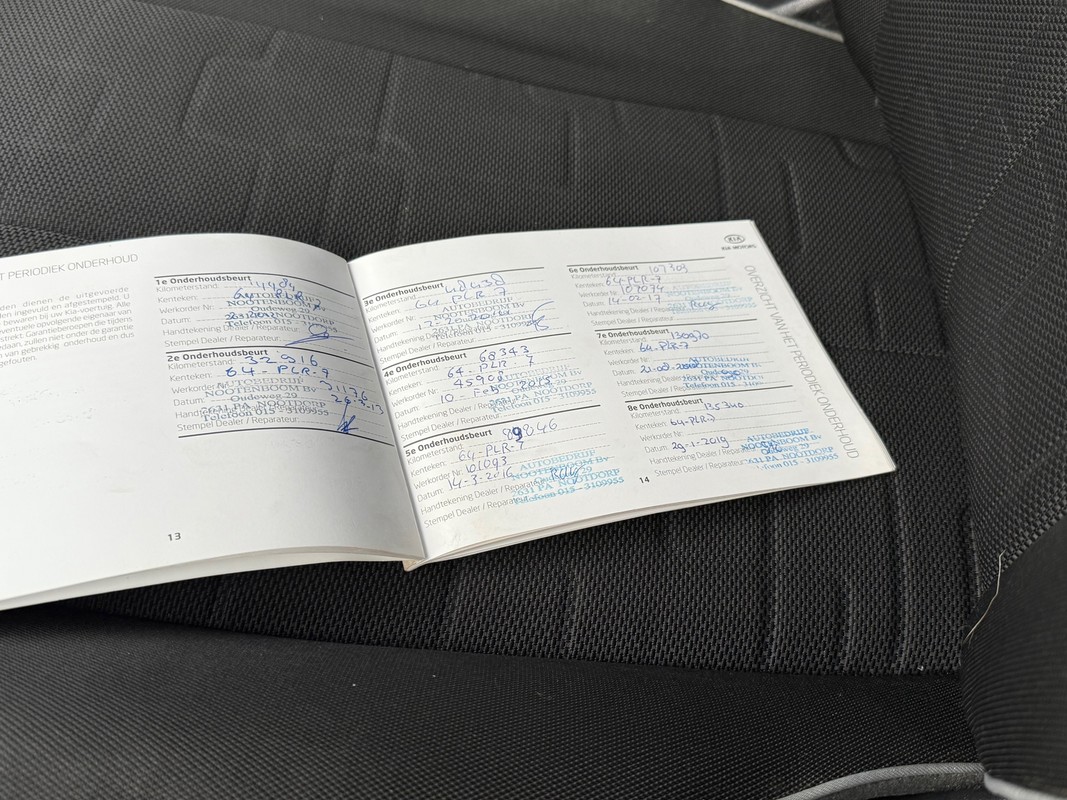 T PERIODIEK ONDERHOUD
den dienen de uitgevoerde
ingevuld en afgestempeld. U
bewaren bij uw Kia-voertuig. Alle
eventuele opvolgende eigenaar van
strekt. Garantieberoepen die tijdens
edaan, zullen niet onder de garantie
van gebrekkig onderhoud en dus
1e Onderhoudsbeurt
Kilometerstand
Kenteken:
Werkorder Nr.
Datum:
Handtekening Dealer / Reparateur
Stempel Dealer / Reparateur
AUTOBEDRIJF
NOOTENBOOM Bv
Oudeweg 29
NOOTDORP
Telefoon 015
2e Onderhoudsbeurt
Kilometerstand 32916
Kenteken: 64-PLR-7
Werkorder Nr. 31136
Datum:
Stempel Dealer / Reparateur
AUTOBEDRIJF
NOOTENBOOM Bv
Oudeweg 29
2631 PA NOOTDORP
Telefoon 015 - 3109955
13
3e Onderhoudsbeurt
Kilometerstand
Kenteken: 64 PLR 7
Werkorder Nr.
Datum:
Handtekening Dealer / Reparateur
Stempel Dealer / Reparateur
AUTOBEDRIJF
NOOTENBOOM Bv
2631 PA NOOTDORP
Telefoon 015 - 3109955
4e Onderhoudsbeurt
Kilometerstand 68343
Kenteken: 64-PLR-7
Werkorder Nr.
Datum: 10-Feb-2015
Handtekening Dealer / Reparateur
Stempel Dealer / Reparateur
AUTOBEDRIJF
NOOTENBOOM Bv
Oudeweg 29
2631 PA NOOTDORP
Telefoon 015 - 3109955
5e Onderhoudsbeurt
Kilometerstand 89846
Kenteken: 64-PLR-7
Werkorder Nr. 101093
Datum: 14-3-2016
Handtekening Dealer / Reparateur
Stempel Dealer / Reparateur
AUTOBEDRIJF
NOOTENBOOM Bv
Oudeweg 29
2631 PA NOOTDORP
Telefoon 015 - 3109955
6e Onderhoudsbeurt
Kilometerstand 107303
Kenteken: 64-PLR-7
Werkorder Nr. 107074
Datum: 14-02-17
Handtekening Dealer / Reparateur
Stempel Dealer / Reparateur
7e Onderhoudsbeurt
Kilometerstand 130970
Kenteken: 64-PLR-7
Werkorder Nr.
Datum:
Handtekening Dealer / Reparateur
Stempel Dealer / Reparateur
AUTOBEDRIJF
NOOTENBOOM Bv
2631 PA NOOTDORP
Telefoon 015 - 310
8e Onderhoudsbeurt
Kilometerstand 135340
Kenteken: 64-PLR-7
Werkorder Nr.
Datum: 29-1-2019
Handtekening Dealer / Reparateur
Stempel Dealer / Reparateur
AUTOBEDRIJF
NOOTENBOOM Bv
2631 PA NOOTDORP
Telefoon 015 - 3109955
14
KIA
KIA MOTORS
OVERZICHT VAN HET PERIODIEK ONDERHOUD